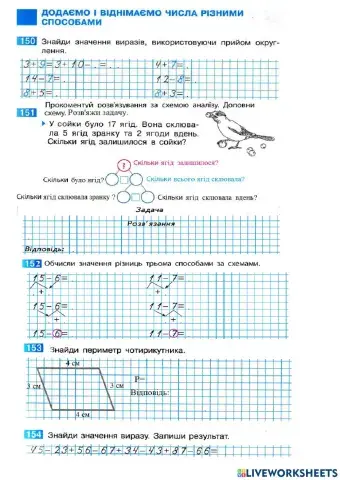 ДОДАЄМО І ВІДНІМАЄМО ЧИСЛА РІЗНИМИ
СПОСОБАМИ
150 Знайди значення виразів, використовуючи прийом округ-
лення.
3+9=3+10-.=. 4+7=.
14-7=. 12-8=.
8+5=. 8+3=.
151 Прокоментуй розв'язування за схемою аналізу. Доповни
схему. Розв'яжи задачу.
У сойки було 17 ягід. Вона склюва-
ла 5 ягід зранку та 2 ягоди вдень.
Скільки ягід залишилося в сойки?
! Скільки ягід залишилося?
Скільки було ягід? Скільки всього ягід склювала?
Скільки ягід склювала зранку ? Скільки ягід склювала вдень?
Задача
Розв'язання
Відповідь:
152 Обчисли значення різниць трьома способами за схемами.
15-6= 11-7=
+ +
15-6= 11-7=
+ +
15-6= 11-7=
153 Знайди периметр чотирикутника.
4 см
3 см 3 см P=
Відповідь:
4 см
154 Знайди значення виразу. Запиши результат.
45-23+56-67+34-43+87-66=
LIVEWORKSHEETS